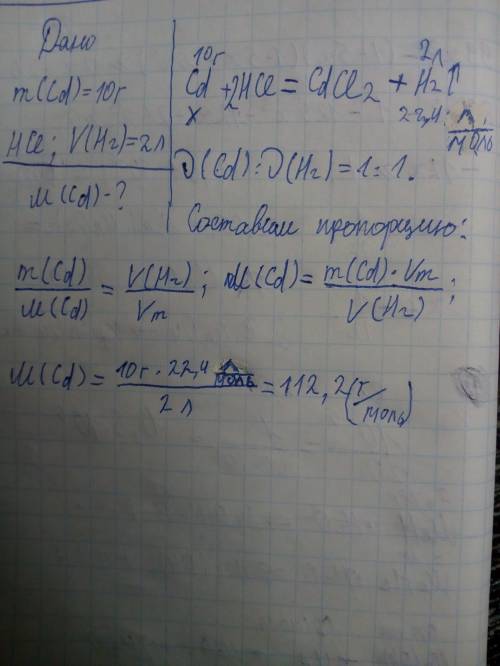 Дано
m(Cd)=10г
HCl; V(H₂)=2л
M(Cd)-?
10г 2л
Cd + 2HCl = CdCl₂ + H₂↑
x 22,4 л/моль
ν(Cd):ν(H₂)=1:1.
Составим пропорцию:
m(Cd)/M(Cd) = V(H₂)/Vm; M(Cd)= m(Cd)·Vm/V(H₂);
M(Cd)= 10г·22,4 л/моль / 2л = 112,2(г/моль)